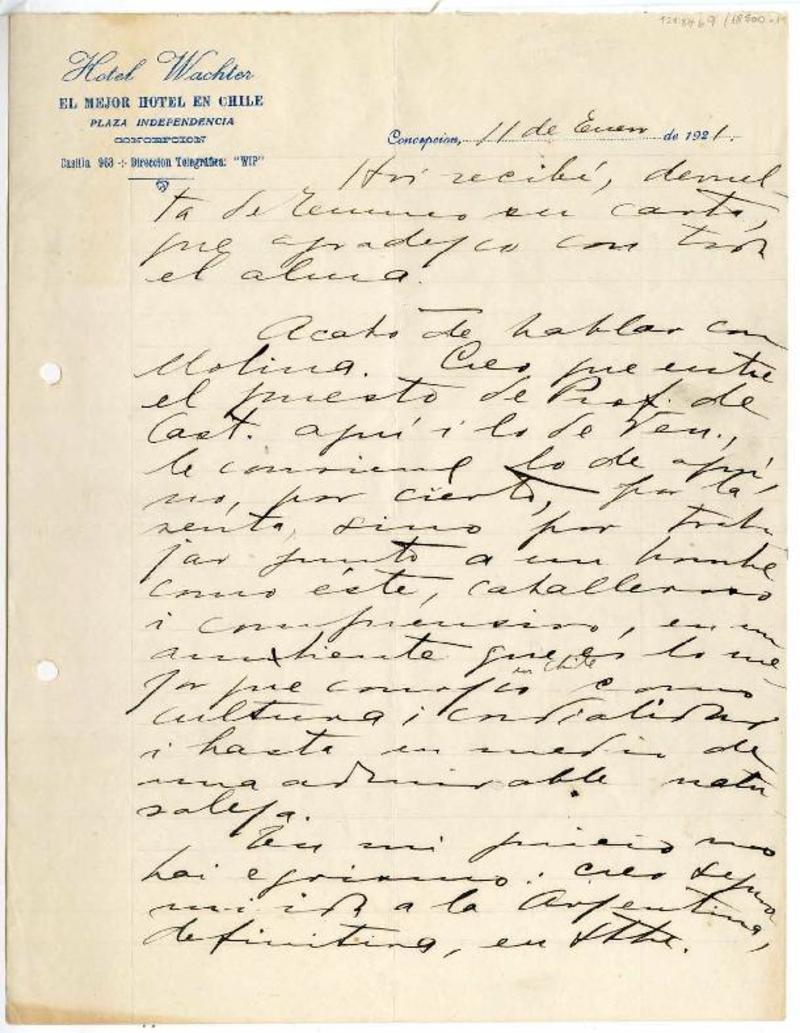 Hotel Wachter
EL MEJOR HOTEL EN CHILE
PLAZA INDEPENDENCIA
CONCEPCION
Casilla 963 -:- Direccion Telegráfica: "WIP"
Concepcion, 11 de Enero de 1921.
Hoi recibí, devuel-
ta de Temuco su carta,
que agradezco con toda
el alma.
Acabo de hablar con
Molina. Creo que entre
el puesto de Prof. de
Cast. aquí i lo de Tem.,
le conviene lo de aquí,
no, por cierto, por la
renta, sino por traba
jar junto a un hombre
como éste, caballeroso
i comprensivo, en un
ambiente que es lo me-
jor que conozco en Chile como
cultura i cordialidad
i hasta en medio de
una admirable natu
raleza.
En mi juicio no
hai egoismo: creo segura
mi ida a la Argentina,
definitiva, en Stbre.